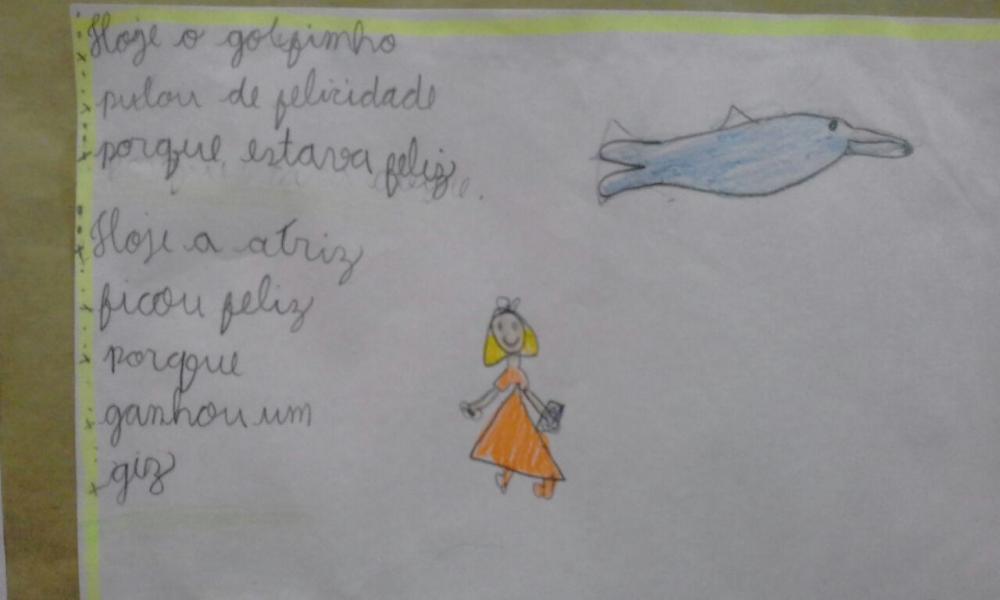 Hoje o golfinho
pulou de felicidade
porque estava feliz.
Hoje a atriz
ficou feliz
porque
ganhou um
giz